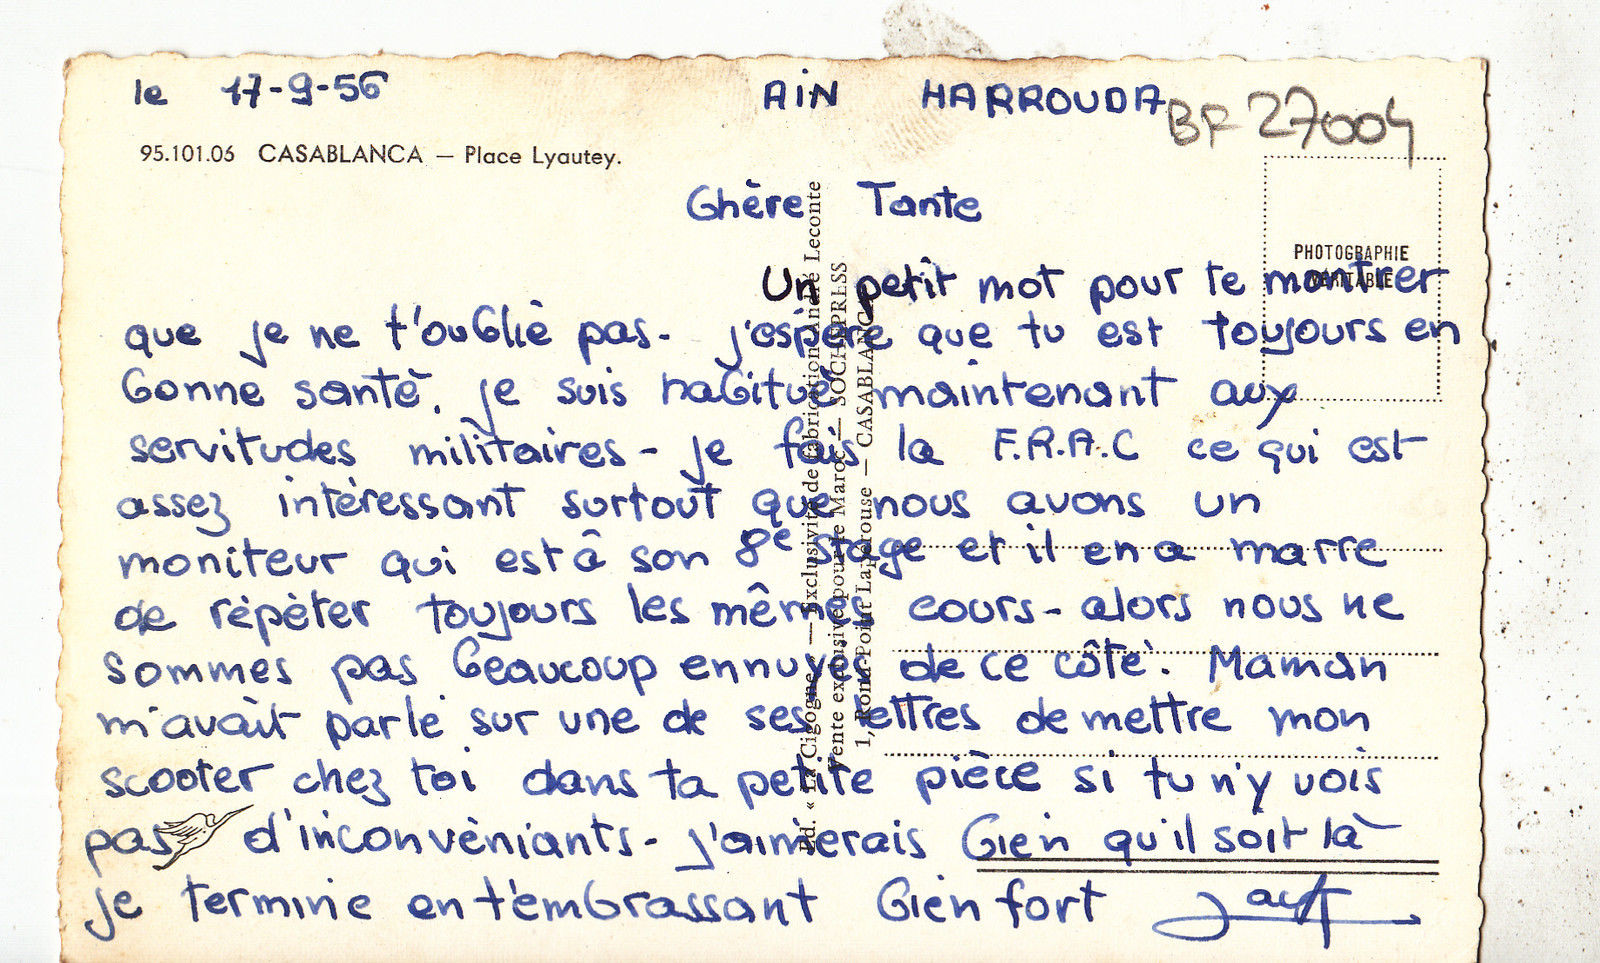 le 17-9-56 AIN HARROUDA
BF 27004
95.101.06 CASABLANCA — Place Lyautey.
PHOTOGRAPHIE
VÉRITABLE
Chère Tante
Un petit mot pour te montrer
que je ne t'oubliè pas. j'espère que tu est toujours en
bonne santè. je suis habituè maintenant aux
servitudes militaires - je fais la F.R.A.C ce qui est
assez intèressant surtout que nous avons un
moniteur qui est â son 8e stage et il en a marre
de rèpèter toujours les mêmes cours - alors nous ne
sommes pas beaucoup ennuyer de ce côtè. Maman
m'avait parlè sur une de ses lettres de mettre mon
scooter chez toi dans ta petite pièce si tu n'y vois
pas d'inconvèniants - j'aimerais bien qu'il soit là
je termine en t'embrassant bien fort
Ed. « La Cigogne » — Exclusivité de fabrication André Leconte
Vente exclusive pour le Maroc — SOCHEPRESS
1, Rond-Point Lapérouse — CASABLANCA